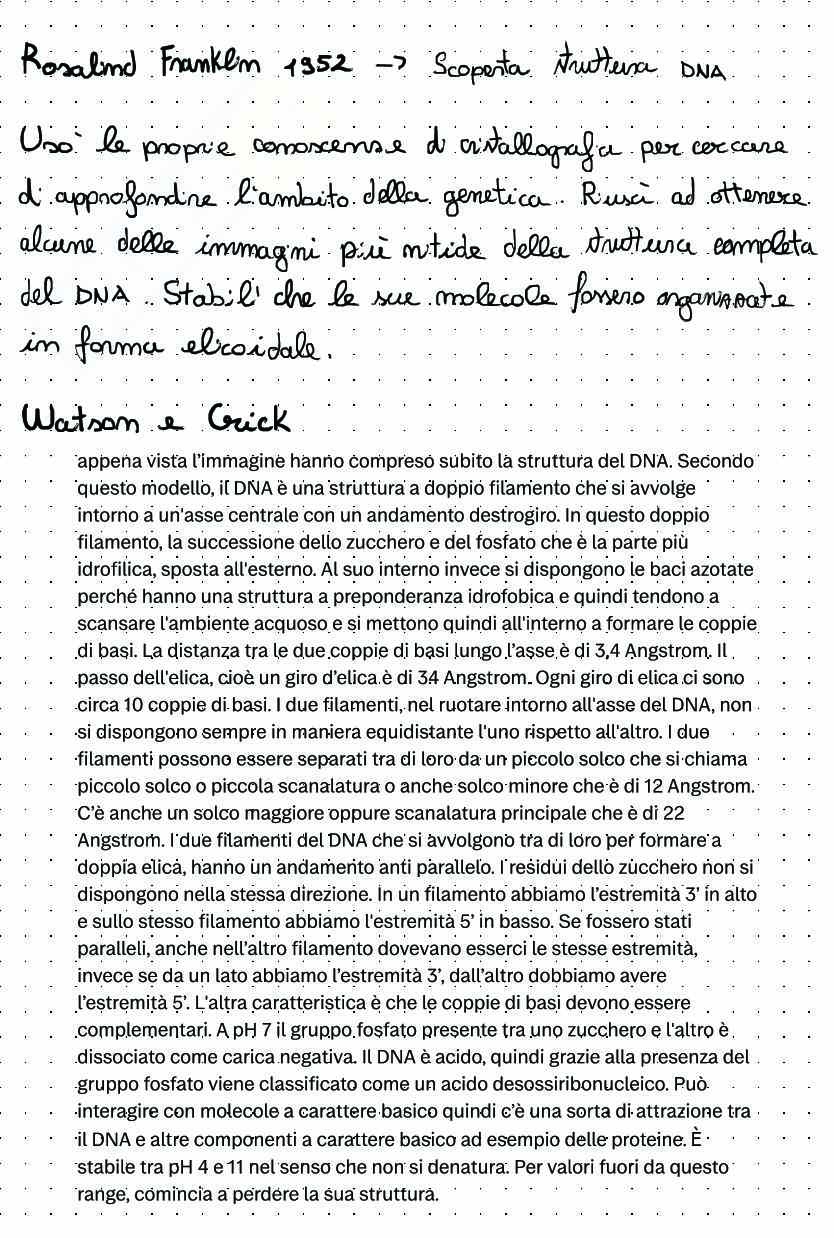 Rosalind Franklin 1952 -> Scoperta struttura DNA
Usò le proprie conoscenze di cristallografia per cercare
di approfondire l'ambito della genetica. Riuscì ad ottenere
alcune delle immagini più nitide della struttura completa
del DNA. Stabilì che le sue molecole fossero organizzate
in forma elicoidale.
Watson e Crick
appena vista l'immagine hanno compreso subito la struttura del DNA. Secondo
questo modello, il DNA è una struttura a doppio filamento che si avvolge
intorno a un'asse centrale con un andamento destrogiro. In questo doppio
filamento, la successione dello zucchero e del fosfato che è la parte più
idrofilica, sposta all'esterno. Al suo interno invece si dispongono le baci azotate
perché hanno una struttura a preponderanza idrofobica e quindi tendono a
scansare l'ambiente acquoso e si mettono quindi all'interno a formare le coppie
di basi. La distanza tra le due coppie di basi lungo l'asse è di 3,4 Angstrom. Il
passo dell'elica, cioè un giro d'elica è di 34 Angstrom. Ogni giro di elica ci sono
circa 10 coppie di basi. I due filamenti, nel ruotare intorno all'asse del DNA, non
si dispongono sempre in maniera equidistante l'uno rispetto all'altro. I due
filamenti possono essere separati tra di loro da un piccolo solco che si chiama
piccolo solco o piccola scanalatura o anche solco minore che è di 12 Angstrom.
C'è anche un solco maggiore oppure scanalatura principale che è di 22
Angstrom. I due filamenti del DNA che si avvolgono tra di loro per formare a
doppia elica, hanno un andamento anti parallelo. I residui dello zucchero non si
dispongono nella stessa direzione. In un filamento abbiamo l'estremità 3' in alto
e sullo stesso filamento abbiamo l'estremità 5' in basso. Se fossero stati
paralleli, anche nell'altro filamento dovevano esserci le stesse estremità,
invece se da un lato abbiamo l'estremità 3', dall'altro dobbiamo avere
l'estremità 5'. L'altra caratteristica è che le coppie di basi devono essere
complementari. A pH 7 il gruppo fosfato presente tra uno zucchero e l'altro è
dissociato come carica negativa. Il DNA è acido, quindi grazie alla presenza del
gruppo fosfato viene classificato come un acido desossiribonucleico. Può
interagire con molecole a carattere basico quindi c'è una sorta di attrazione tra
il DNA e altre componenti a carattere basico ad esempio delle proteine. È
stabile tra pH 4 e 11 nel senso che non si denatura. Per valori fuori da questo
range, comincia a perdere la sua struttura.